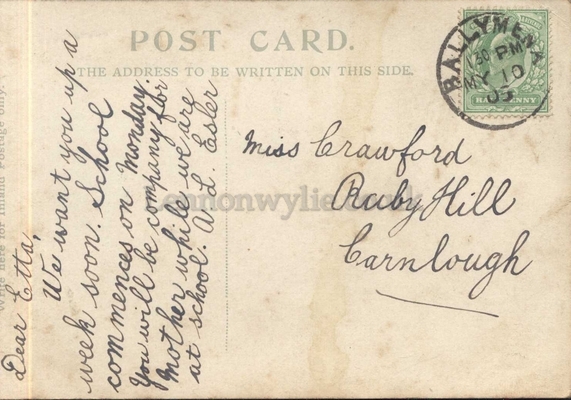 POST CARD.
THE ADDRESS TO BE WRITTEN ON THIS SIDE.
Write here for Inland Postage only.
Dear Etta,
We want you up a
week soon. School
commences on Monday.
You will be company for
Mother while we are
at school. A. L. Esler
BALLYMENA
1 30 PM
MY 10
05
HALFPENNY
Miss Crawford
Ruby Hill
Carnlough
lennonwylie.co.uk